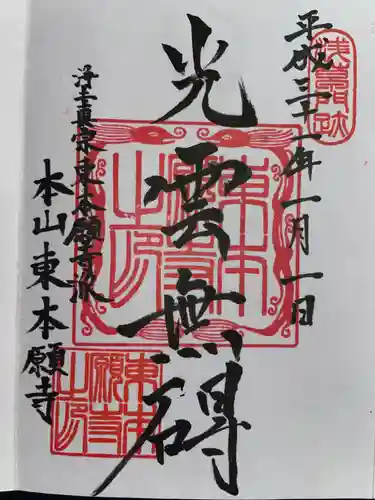 浅草門跡
平成三十一年一月一日
光雲無碍
浄土真宗東本願寺派
本山東本願寺
東本願寺山印
東本願寺山印